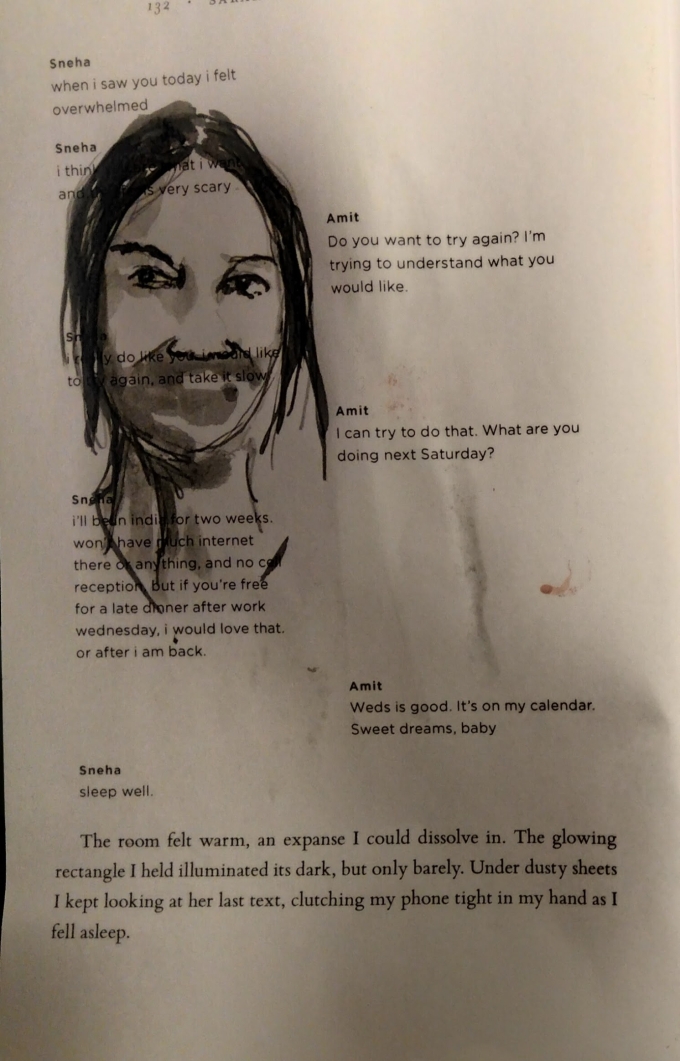 132
Sneha
when i saw you today i felt
overwhelmed
Sneha
i think what i want
and this is very scary
Amit
Do you want to try again? I'm
trying to understand what you
would like.
Sneha
i really do like you. i would like
to try again, and take it slow
Amit
I can try to do that. What are you
doing next Saturday?
Sneha
i'll be in india for two weeks.
won't have much internet
there or anything, and no cell
reception. but if you're free
for a late dinner after work
wednesday, i would love that.
or after i am back.
Amit
Weds is good. It's on my calendar.
Sweet dreams, baby
Sneha
sleep well.
The room felt warm, an expanse I could dissolve in. The glowing
rectangle I held illuminated its dark, but only barely. Under dusty sheets
I kept looking at her last text, clutching my phone tight in my hand as I
fell asleep.